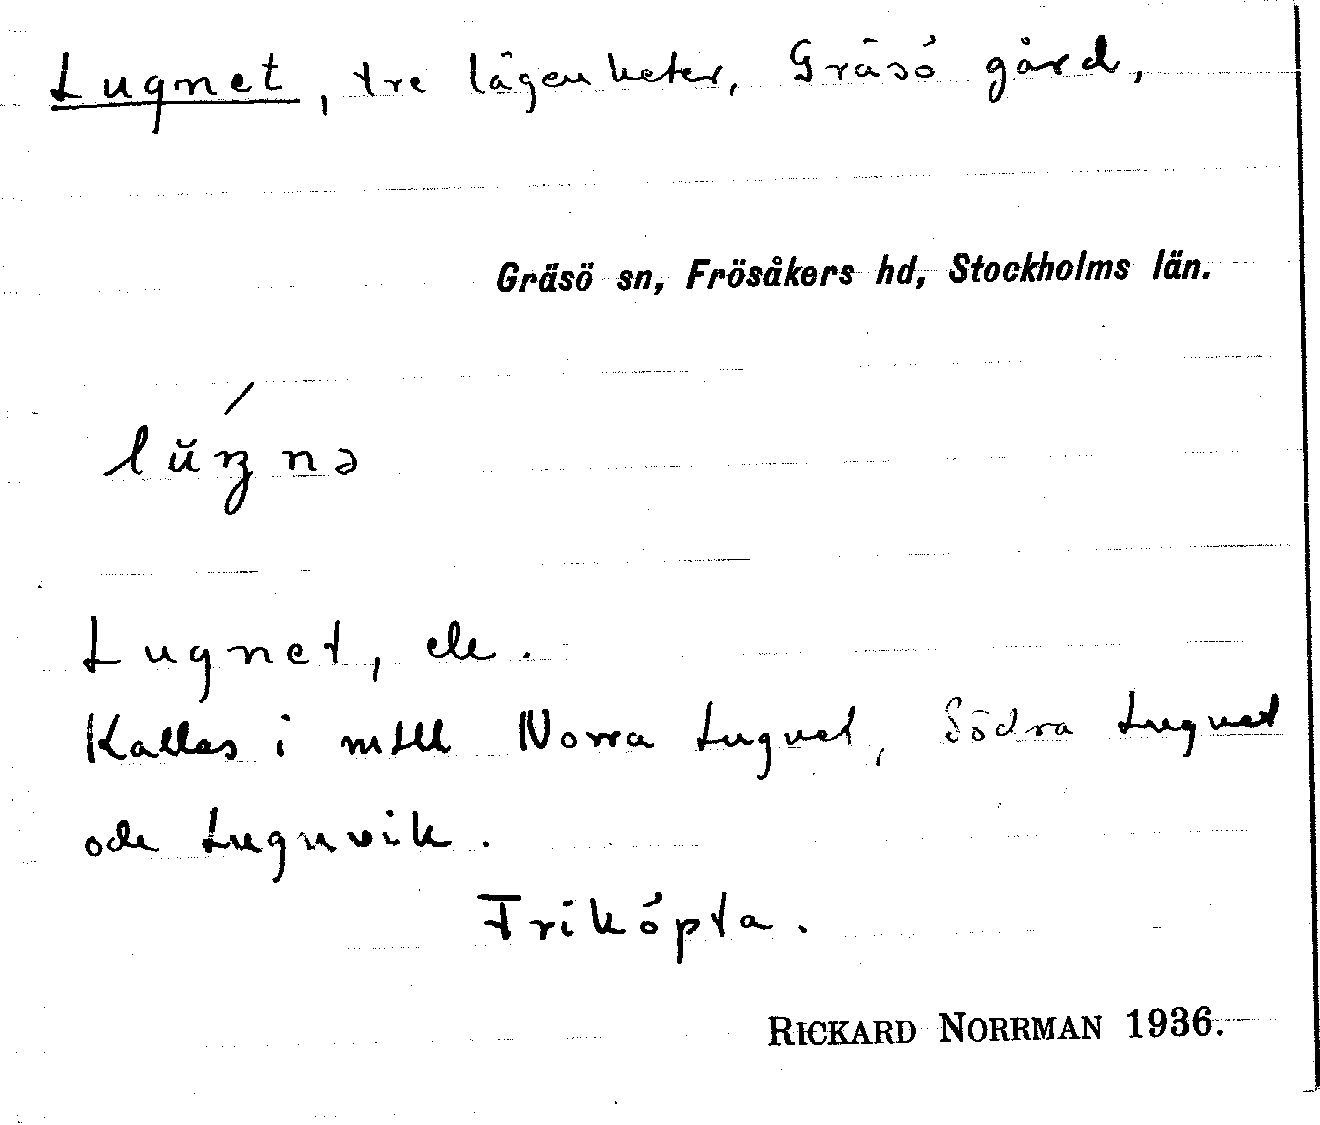 Lugnet, tre lägenheter, Gräsö gård,
Gräsö sn, Frösåkers hd, Stockholms län.
lŭŋnə
Lugnet, ek.
Kallas i mtll Norra Lugnet, Södra Lugnet
och Lugnvik.
Friköpta.
RICKARD NORRMAN 1936.